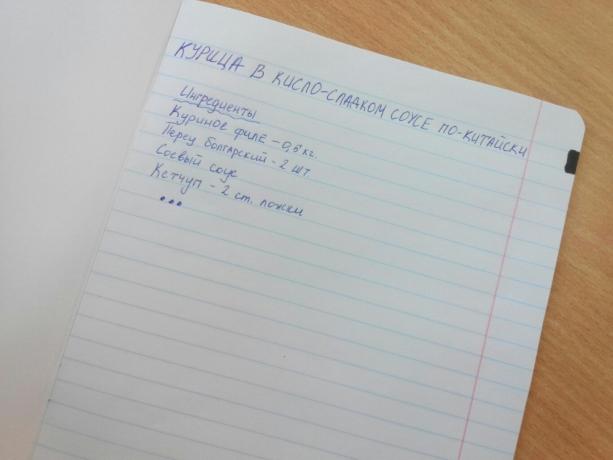 КУРИЦА В КИСЛО-СЛАДКОМ СОУСЕ ПО-КИТАЙСКИ
Ингредиенты
Куриное филе - 0,5 кг.
Перец болгарский - 2 шт.
Соевый соус
Кетчуп - 2 ст. ложки
...